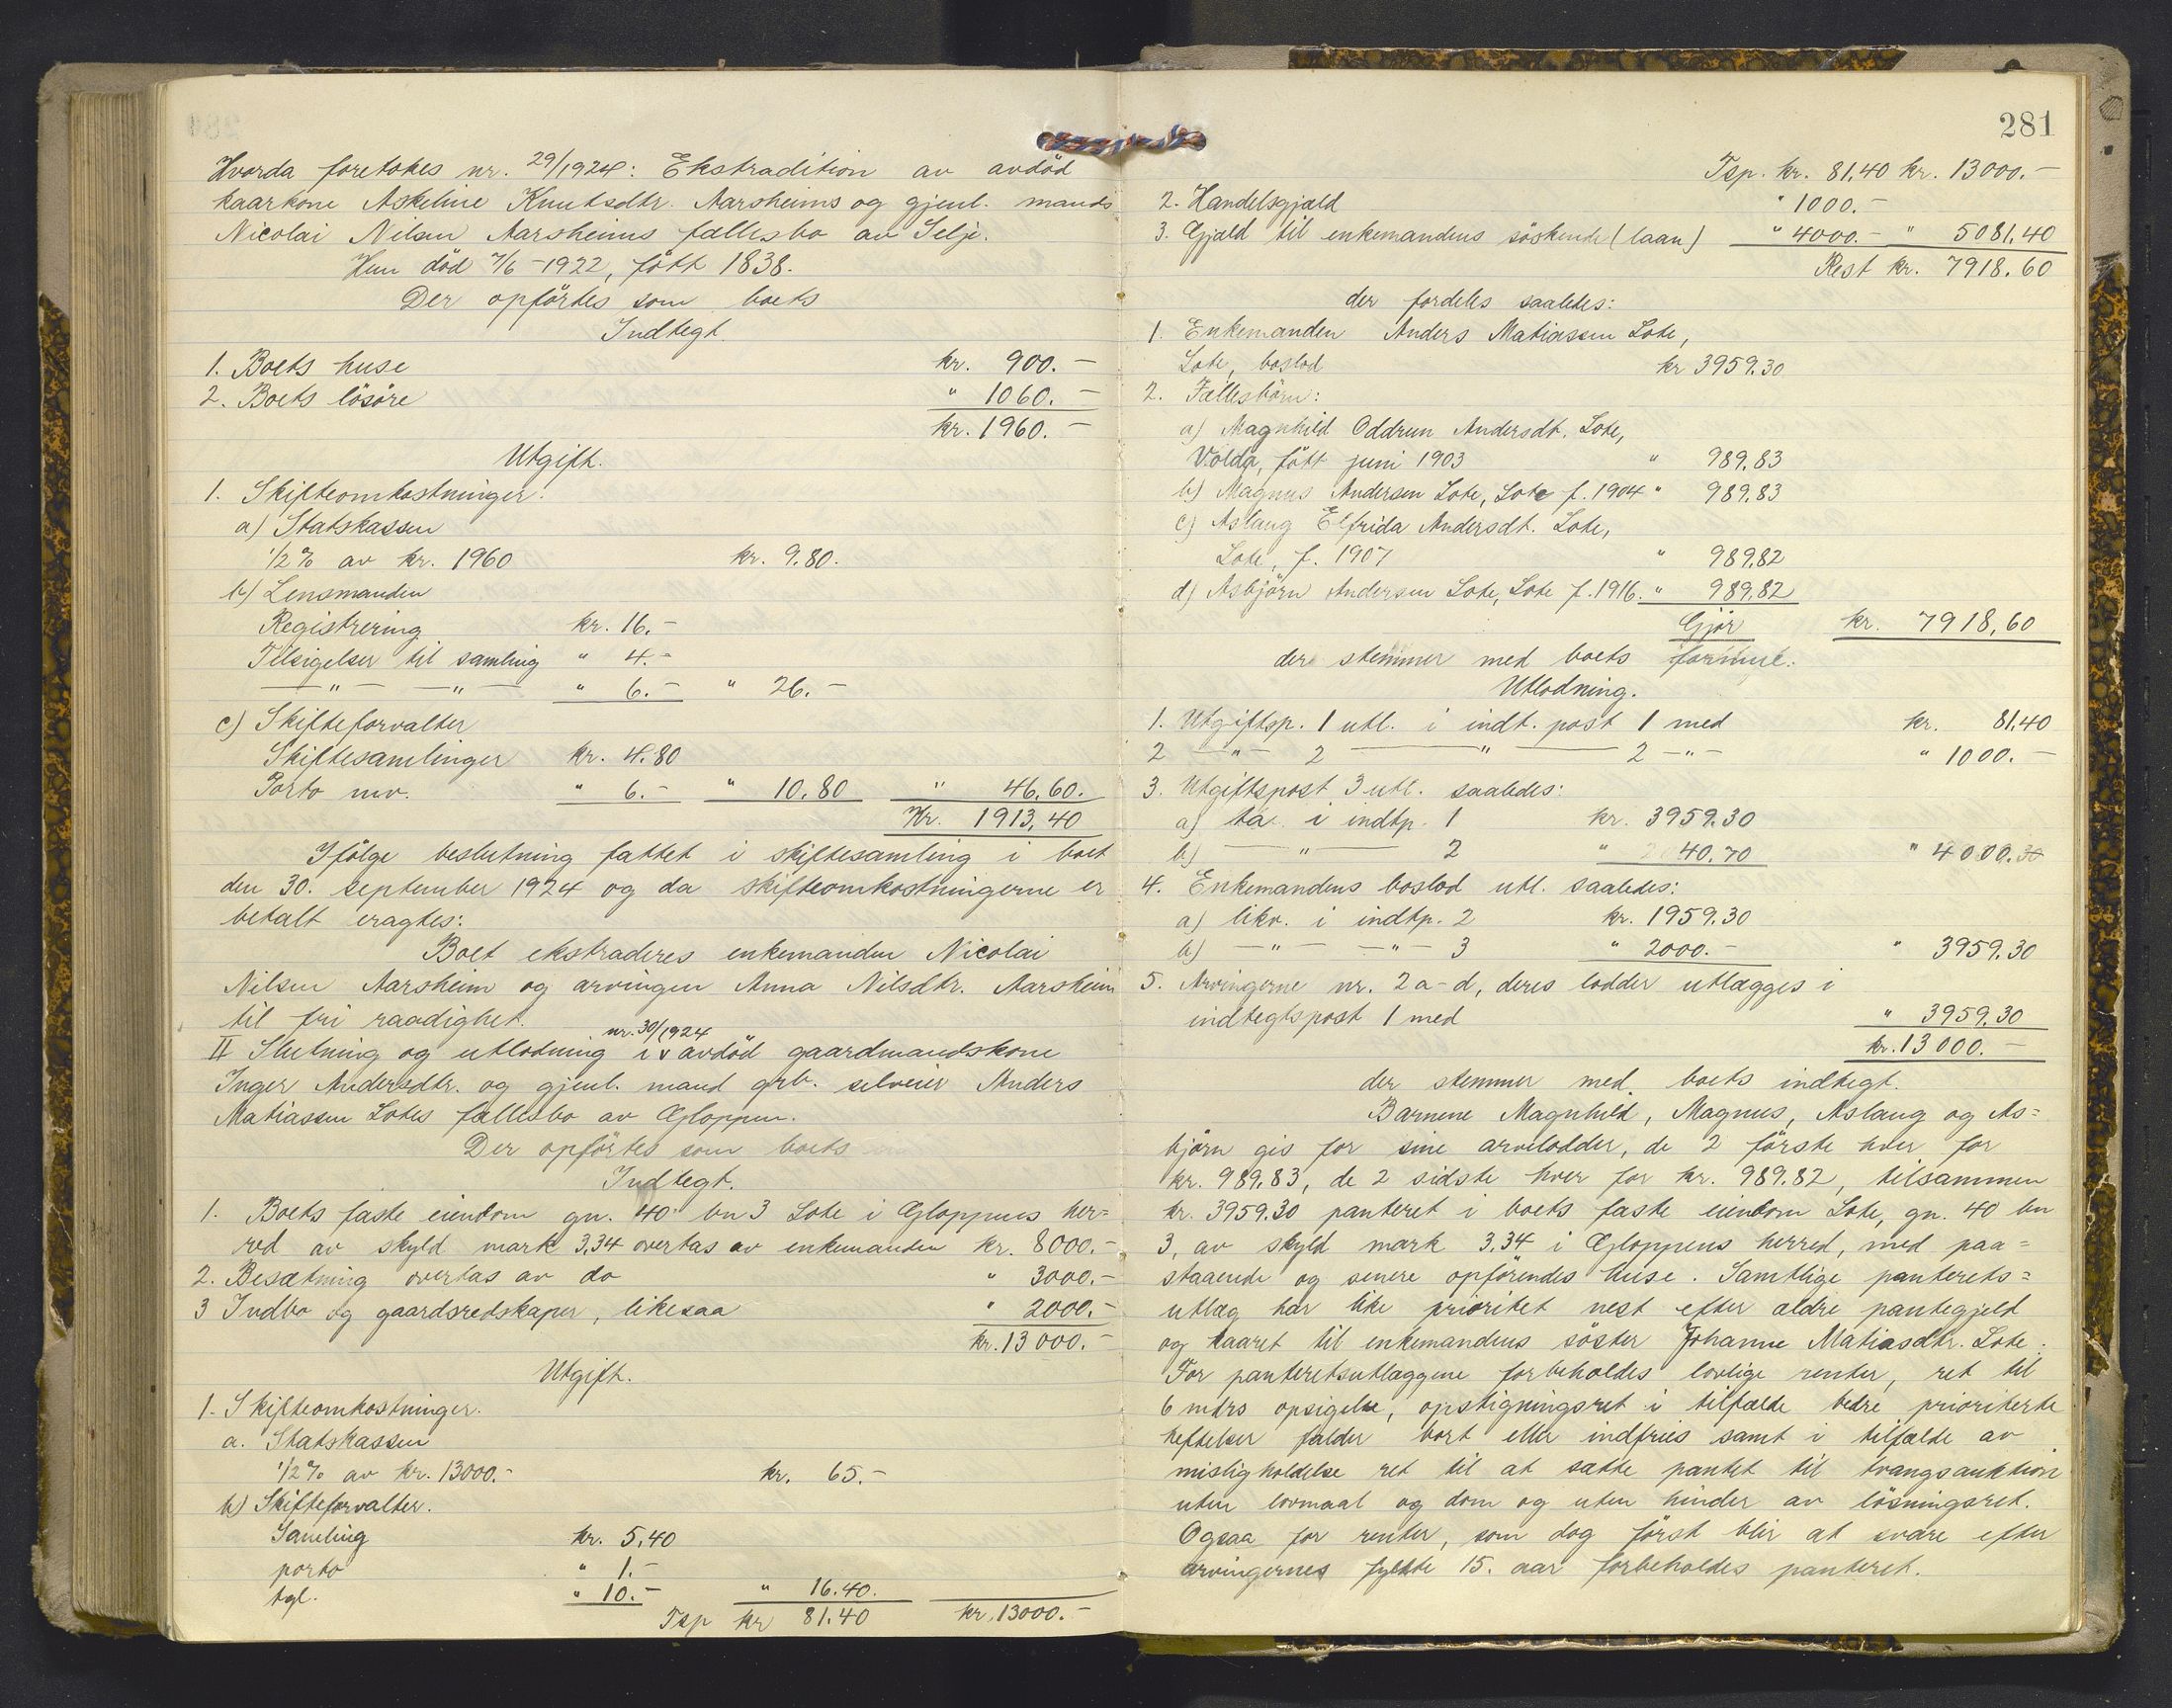 Hvorda foretokes nr. 29/1924: Ekstradition av avdöd
kaarkone Askeline Knutsdtr. Aarsheims og gjenl. mands
Nicolai Nilsen Aarsheims fællesbo av Selje.
Hun död 7/6-1922, fött 1838.
Der opförtes som boets
Indtegt.
1. Boets huse kr. 900.-
2. Boets lösöre " 1060.-
kr. 1960.-
Utgift.
1. Skifteomkostninger.
a) Statskassen
1/2 % av kr. 1960 kr. 9.80.
b) Lensmanden
Registrering kr. 16.-
Tilsigelser til samling " 4.-
— " — — " — " 6.- " 26.-
c) Skifteforvalter
Skiftesamlinger kr. 4.80
Porto mv. " 6.- " 10.80 " 46.60.
Kr. 1913.40
Ifölge beslutning fattet i skiftesamling i boet
den 30. september 1924 og da skifteomkostningerne er
betalt eragtes:
Boet ekstraderes enkemanden Nicolai
Nilsen Aarsheim og arvingen Anna Nilsdtr. Aarsheim
til fri raadighet.
nr. 30/1924
II Slutning og utlodning i v avdöd gaardmandskone
Inger Andersdtr. og gjenl. mand grb. selveier Anders
Matiassen Lotes fællesbo av Gloppen.
Der opförtes som boets
Indtegt.
1. Boets faste eiendom gn. 40 bn 3 Lote i Gloppens her=
red av skyld mark 3,34 overtas av enkemanden kr. 8000.-
2. Besætning overtas av do " 3000.-
3 Indbo og gaardsredskaper, likesaa " 2000.-
kr. 13000.-
Utgift.
1. Skifteomkostninger.
a. Statskassen
1/2 % av kr. 13000.- kr. 65.-
b) Skifteforvalter.
Samling kr. 5,40
porto " 1.-
tgl. " 10.- " 16.40.
Tsp kr 81.40 kr. 13000.-
281
Tsp. kr. 81,40 kr. 13000.-
2. Handelsgjæld " 1000.-
3. Gjæld til enkemandens söskende (laan) " 4000.- " 5081,40
Rest kr. 7918.60
der fordeles saaledes:
1. Enkemanden Anders Matiassen Lote,
Lote, boslod kr 3959.30
2. Fællesbörn:
a) Magnhild Oddrun Andersdt. Lote,
Volda, fött juni 1903 " 989,83
b) Magnus Andersen Lote, Lote f. 1904 " 989,83
c) Aslaug Elfrida Andersdt. Lote,
Lote, f. 1907 " 989,82
d) Asbjörn Andersen Lote, Lote f. 1916. " 989,82
Gjör kr. 7918,60
der stemmer med boets formue.
Utlodning.
1. Utgiftsp. 1 utl. i indt. post 1 med kr. 81.40
2 — " — 2 — " — 2 — " — " 1000.-
3. Utgiftspost 3 utl. saaledes:
a) i indtp. 1 kr. 3959.30
b) — " — 2 " 40.70 " 4000.
4. Enkemandens boslod utl. saaledes:
a) likv. i indtp. 2 kr. 1959.30
b) — " — — " — 3 " 2000.- " 3959.30
5. Arvingerne nr. 2 a-d, deres lodder utlægges i
indtegtspost 1 med " 3959,30
kr. 13000.-
der stemmer med boets indtegt.
Barnene Magnhild, Magnus, Aslaug og As=
björn gis for sine arvelodder, de 2 förste hver for
kr. 989.83, de 2 sidste hver for kr. 989.82, tilsammen
kr. 3959.30 panteret i boets faste eiendom Lote, gn. 40 bn
3, av skyld mark 3.34 i Gloppens herred, med paa=
staaende og senere opförendes huse. Samtlige panterets=
utlæg har like prioritet nest efter ældre pantegjeld
og kaaret til enkemandens söster Johanne Matiasdtr. Lote.
For panteretsutlæggene forbeholdes lovlige renter, ret til
6 mdrs opsigelse, opstigningsret i tilfælde bedre prioriterte
heftelser falder bort eller indfries samt i tilfælde av
misligholdelse ret til at sætte pantet til tvangsauktion
uten lovmaal og dom og uten hinder av lösningsret.
Ogsaa for renter, som dog först blir at svare efter
arvingernes fyldte 15. aar forbeholdes panteret.